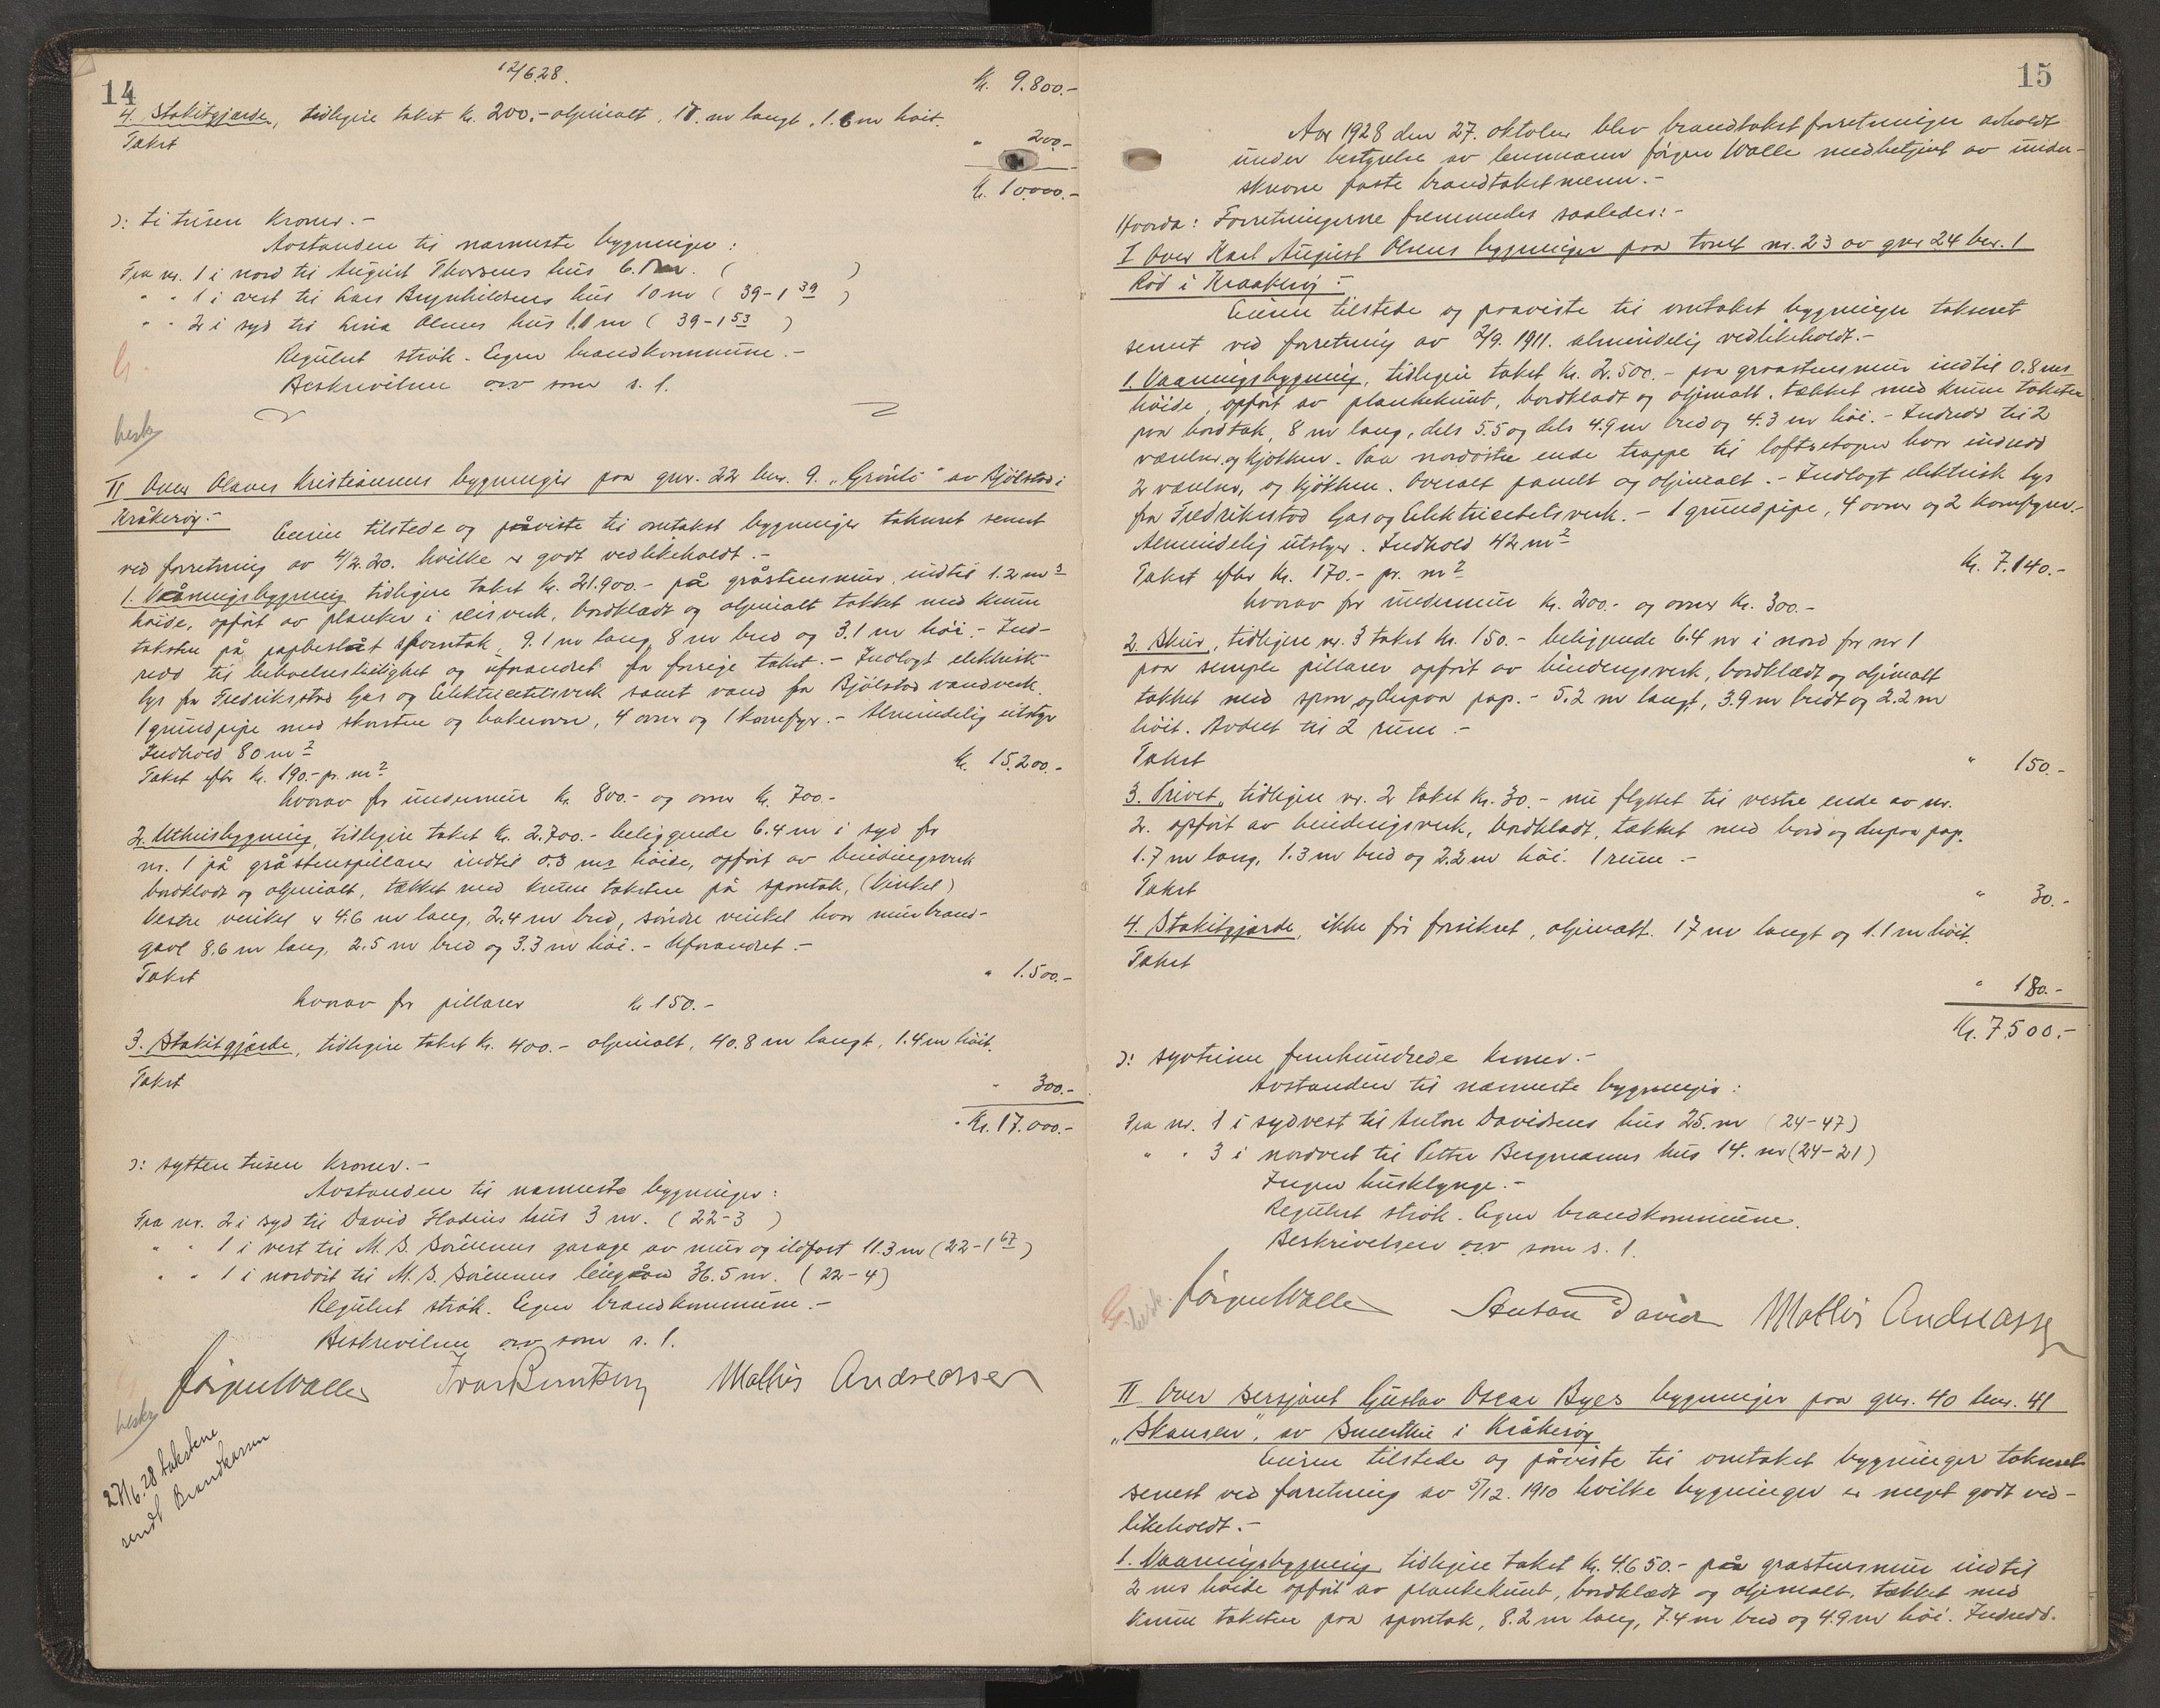 14
12/6.28.
Kr. 9.800.-
4. Stakitgjærde, tidligere takst Kr. 200.- oljemalt, 17. m langt, 1.6 m höit.
Takst " 200.-
Kr. 10.000.-
ɔ: ti tusen Kroner.-
Avstanden til nærmeste bygninger:
Fra nr. 1 i nord til August Thorsens hus 6.1 m. ( )
" " 1 i vest til Lars Brynhildsens hus 10 m ( 39-1 39 )
" " 2 i syd til Lina Olsens hus 1.0 m ( 39-1 53 )
G.
Regulert strök. Egen brandkommune.-
Beskrivelsen osv som s. 1.
beskr
II Over Olaves Kristiansens bygninger paa gnr. 22 bnr. 9. "Grönli" av Bjölstad i
Kråkeröy.-
Eieren tilstede og påviste til omtakst bygninger taksert senest
ved forretning av 4/2.20. hvilke er godt vedlikeholdt.-
1. Våningsbygning tidligere takst Kr. 21.900.- på gråstensmur indtil 1.2 ms
höide, opfört av planker i reisverk, bordklædt og oljemalt tækket med krum
taksten på papbeslåt sperretak, 9.1 m lang, 8 m bred og 3.1 m höi.- Ind-
redd til beboelsesleilighet og uforandret fra forrige takst.- Indlagt elektrisk
lys fra Fredriksstad Gas og Elektricitetsverk samt vand fra Bjölstad vandverk.
1 grundpipe med skorsten og bakerovn, 4 ovner og 1 komfyr.- Almindelig utstyr
Indhold 80 m²
Takst efter Kr. 190.- pr. m² Kr. 15.200.-
hvorav for undermur Kr. 800.- og ovner Kr. 700.-
2. Uthusbygning, tidligere takst Kr. 2.700.- beliggende 6.4 m i syd for
nr. 1 på gråstenspillarer indtil 0.3 ms höide, opfört av bindingsverk
bordklædt og oljemalt, tækket med krum taksten på spontak, (Vinkel)
Vestre vinkel er 4.6 m lang, 2.4 m bred, söndre vinkel hvor mur brand-
gavl 8.6 m lang, 2.5 m bred og 3.3 m höi.- Uforandret.-
Takst " 1.500.-
hvorav for pillarer Kr 150.-
3. Stakitgjærde, tidligere takst Kr. 400.- oljemalt, 40.8 m langt, 1.4 m höit.
Takst " 300.-
Kr. 17.000.-
ɔ: sytten tusen Kroner.-
Avstanden til nærmeste bygninger:
Fra nr. 2 i syd til David Hadins hus 3 m. ( 22-3 )
" " 1 i vest til M. S. Sörensens garage av mur og ildfast 11.3 m (22-1 67)
" " 1 i nordöst til M. S. Sörensens leiegård 36.5 m. ( 22-4)
Regulert strök. Egen brandkommune.-
Beskrivelsen osv som s. 1.
G
beskr
Jörgen Walle Ivar Berntsen Mathis Andreassen
27/6.28 takstene
sendt Brandkassen
15
Aar 1928 den 27. oktober blev brandtakstforretninger avholdt
under bestyrelse av lensmann Jörgen Walle medbetjent av under-
skrevne faste brandtakstmenn.-
Hvorda: Forretningerne fremmedes saaledes:-
I Over Karl August Olsens bygninger paa tomt nr. 23 av gnr 24 bnr. 1
Röd i Kraakeröy:-
Eieren tilstede og paaviste til omtakst bygninger taksert
senest ved forretning av 2/9. 1911. almindelig vedlikeholdt.-
1. Vaaningsbygning, tidligere takst Kr. 2.500.- paa graastensmur indtil 0.8 ms
höide, opfört av plankekubb, bordklædt og oljemalt, tækket med krum taksten
paa bordtak, 8 m lang, dels 5.5 og dels 4.9 m bred og 4.3 m höi.- Indredd til 2
værelser og kjökken. Paa nordöstre ende trappe til loftsetagen hvor indredd
2 værelser, og kjökken. Overalt panelt og oljemalt.- Indlagt elektrisk lys
fra Fredriksstad Gas og Elektricitetsverk.- 1 grundpipe, 4 ovner og 2 komfyrer.-
Almindelig utstyr. Indhold 42 m²
Takst efter Kr. 170.- pr. m² Kr. 7.140.-
hvorav for undermur Kr. 200.- og ovner Kr. 300.-
2. Skur, tidligere nr. 3 takst Kr. 150.- beliggende 6.4 m i nord for nr 1
paa simple pillarer opfört av bindingsverk, bordklædt og oljemalt
tækket med spon og derpaa pap.- 5.2 m langt, 3.9 m bredt og 2.2 m
höit. Avdelt til 2 rum.-
Takst " 150.-
3. Privet, tidligere nr. 2 takst Kr. 30.- nu flyttet til vestre ende av nr.
2. opfört av bindingsverk, bordklædt, tækket med bord og derpaa pap.
1.7 m lang, 1.3 m bred og 2.2 m höi. 1 rum.-
Takst " 30.-
4. Stakitgjærde, ikke för forsikret, oljemalt. 17 m langt og 1.1 m höit.
Takst
" 180.-
Kr. 7.500.-
ɔ: syvtusen femhundrede kroner.-
Avstanden til nærmeste bygninger:
Fra nr. 1 i sydvest til Anton Davidsens hus 25. m (24-47)
" " 3 i nordvest til Petter Bergmanns hus 14. m (24-21)
Ingen husklynge.-
Regulert strök. Egen brandkommune.
Beskrivelsen osv som s. 1.
G.
beskr.
Jörgen Walle Anton Davidsen Mathis Andreassen
II Over sersjant Gustav Oscar Byes bygninger paa gnr. 40 bnr. 41
"Skansen", av Smerthu i Kråkeröy
Eieren tilstede og påviste til omtakst bygninger taksert
senest ved forretning av 5/12. 1910 hvilke bygninger er meget godt ved-
likeholdt.-
1. Vaaningsbygning, tidligere takst Kr. 4.650.- på graastensmur indtil
2 ms höide opfört av plankekubb, bordklædt og oljemalt, tækket med
krum taksten paa spontak, 8.2 m lang, 7.4 m bred og 4.9 m höi. Indredd.